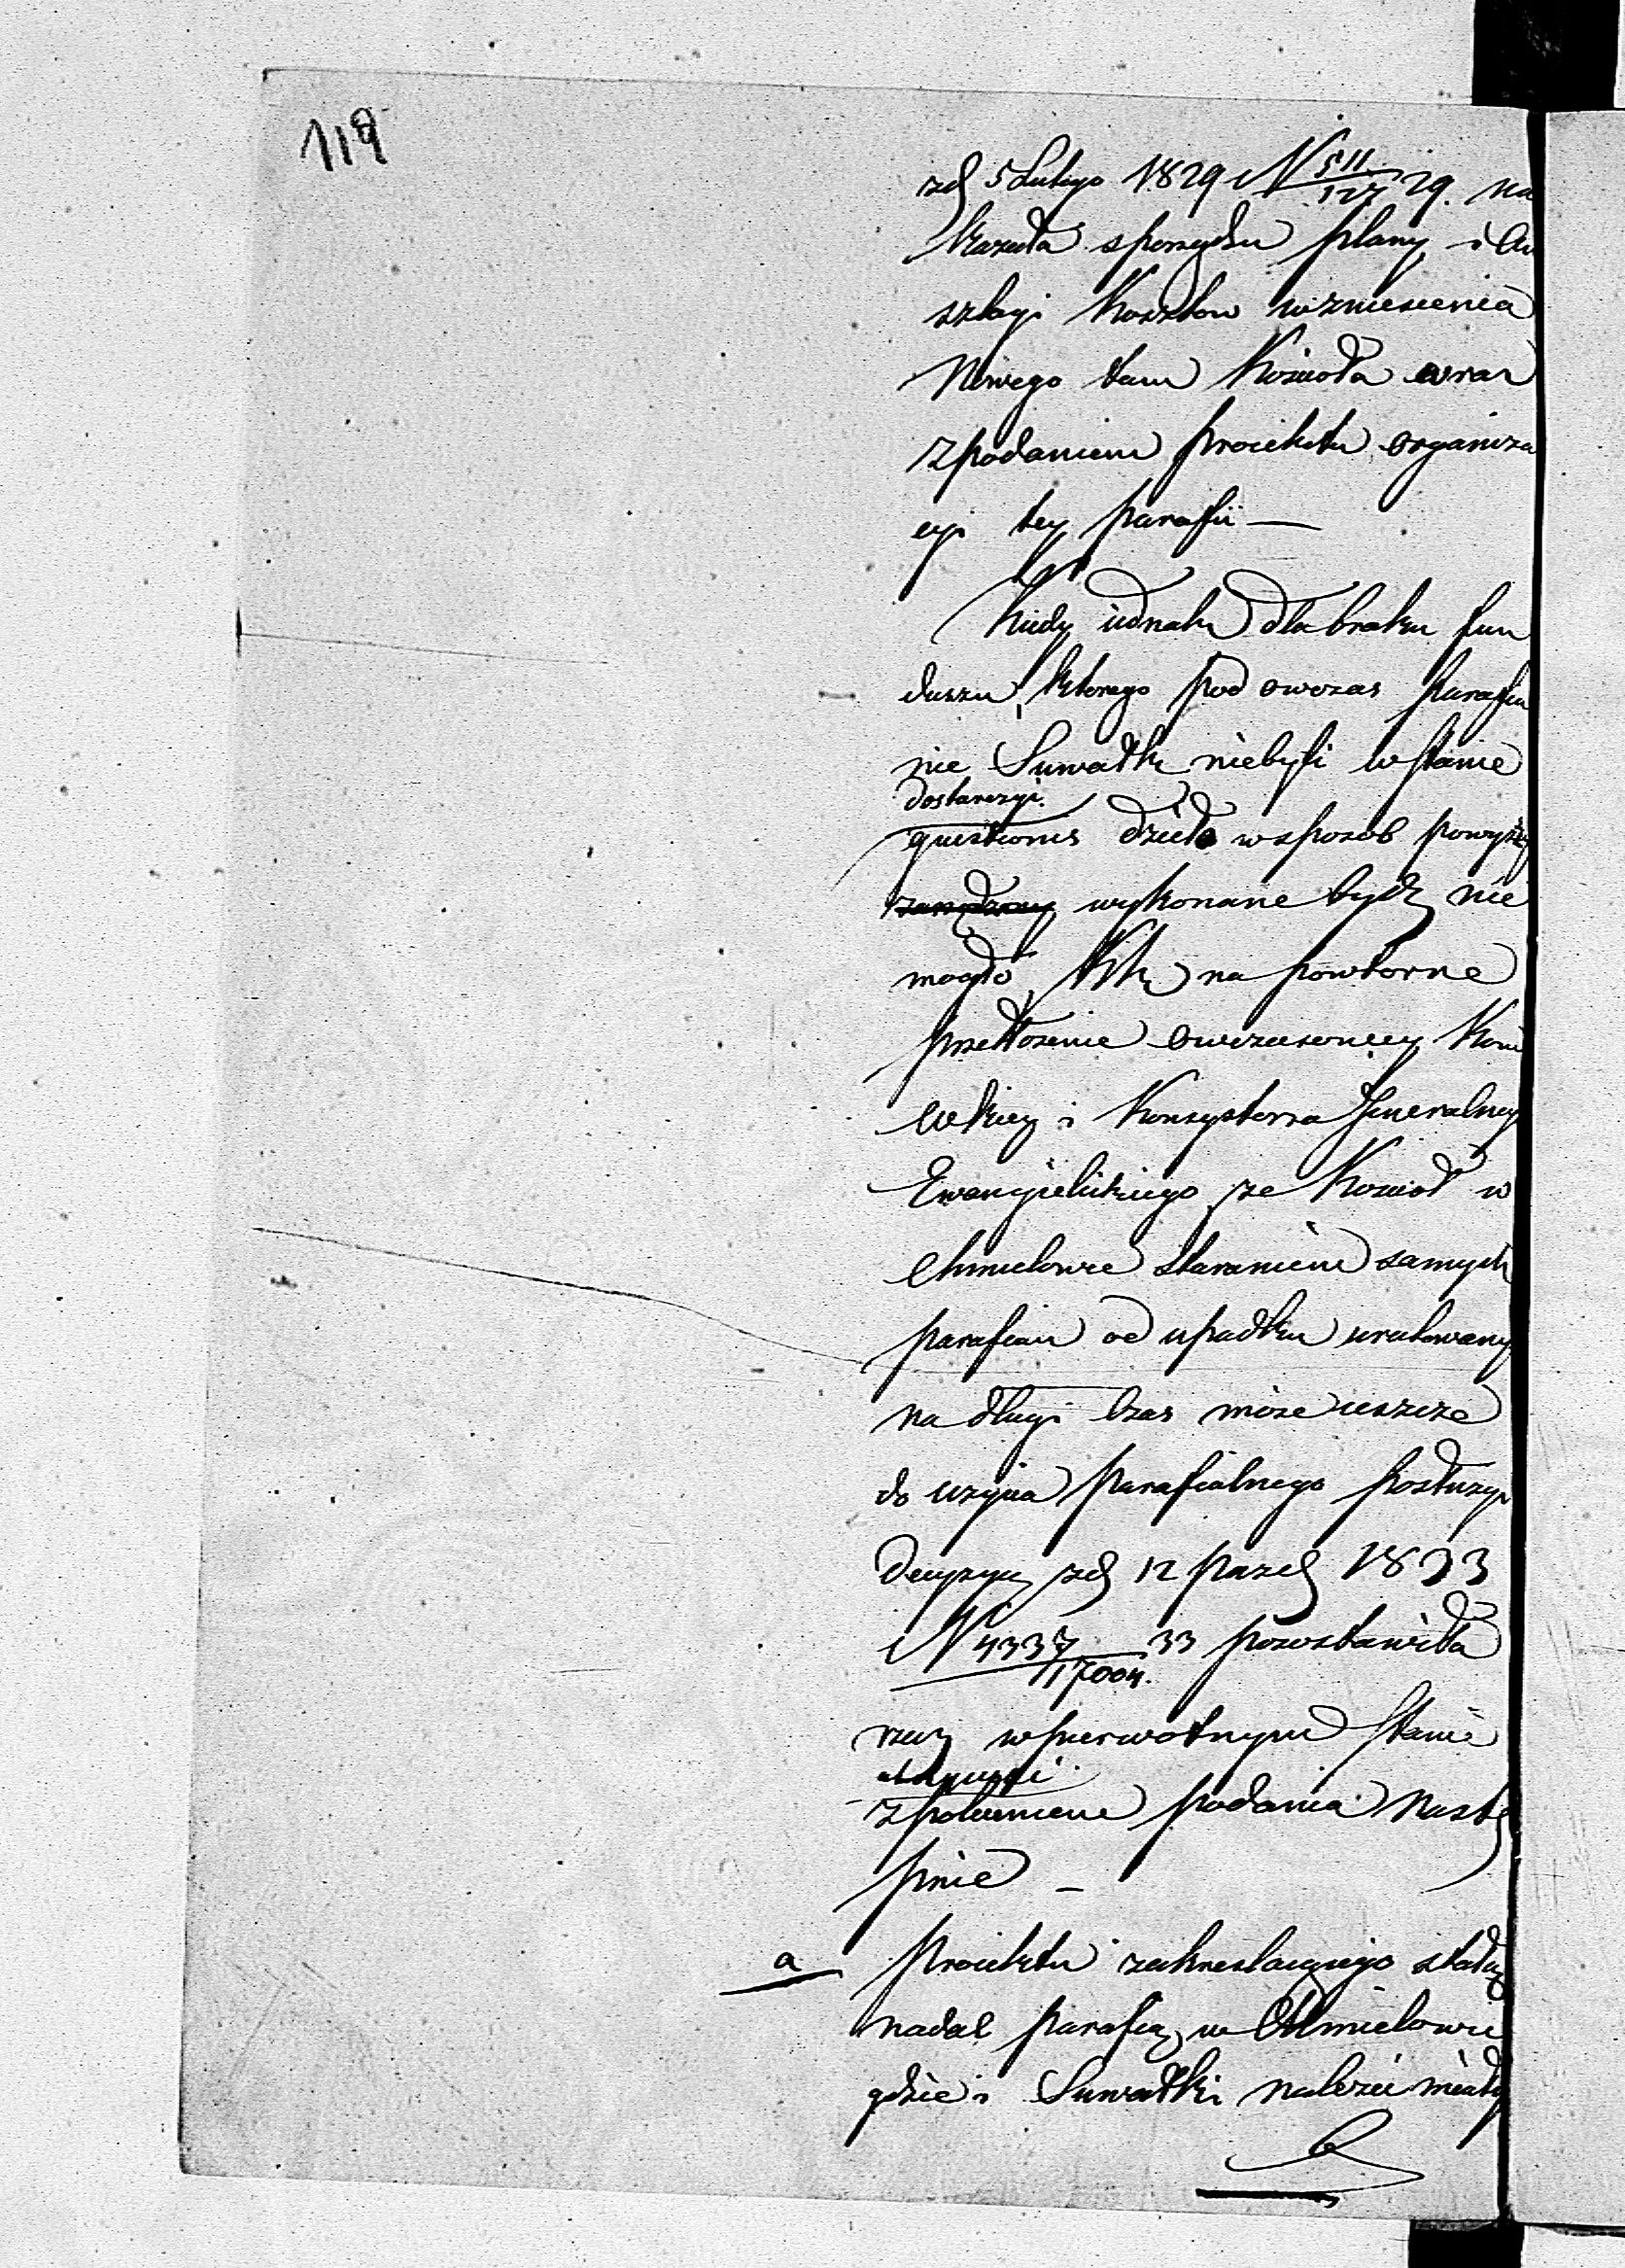 119
zd 5 Lutego 1829 N 511/127 29. na
kazała sporządzić plany i An
szlagi Kosztow wzniesienia
Nowego tam Koscioła wraz
z podaniem proiektu organiza
cyi tey parafii —
Kiedy iednak dla braku fun
duszu, ktorego pod owczas parafia
nie Suwałk niebyli w stanie
dostarczyc.
questionis dzieło w sposob powyższy
wykonane bydź nie
mogło, na powtorne
przełożenie owczesowey Kom
Wdkiey i Konsystorza Jeneralnego
Ewangielickiego ze Koscioł w
Chmielowce staraniem samych
parafian od upadku uratowany
na długi czas może ieszcze
do uzycia parafialnego posłużyc
Decyzyą zd 12 Pazd 1833
N 4337/17004. 33 pozostawiła
rzecz w pierwotnym stanie
z poleceniem podania nastę
pnie —
a proiektu zakreslaiącego stałą
nadal parafią w Chmielowce
gdzie i Suwałki należeć miały